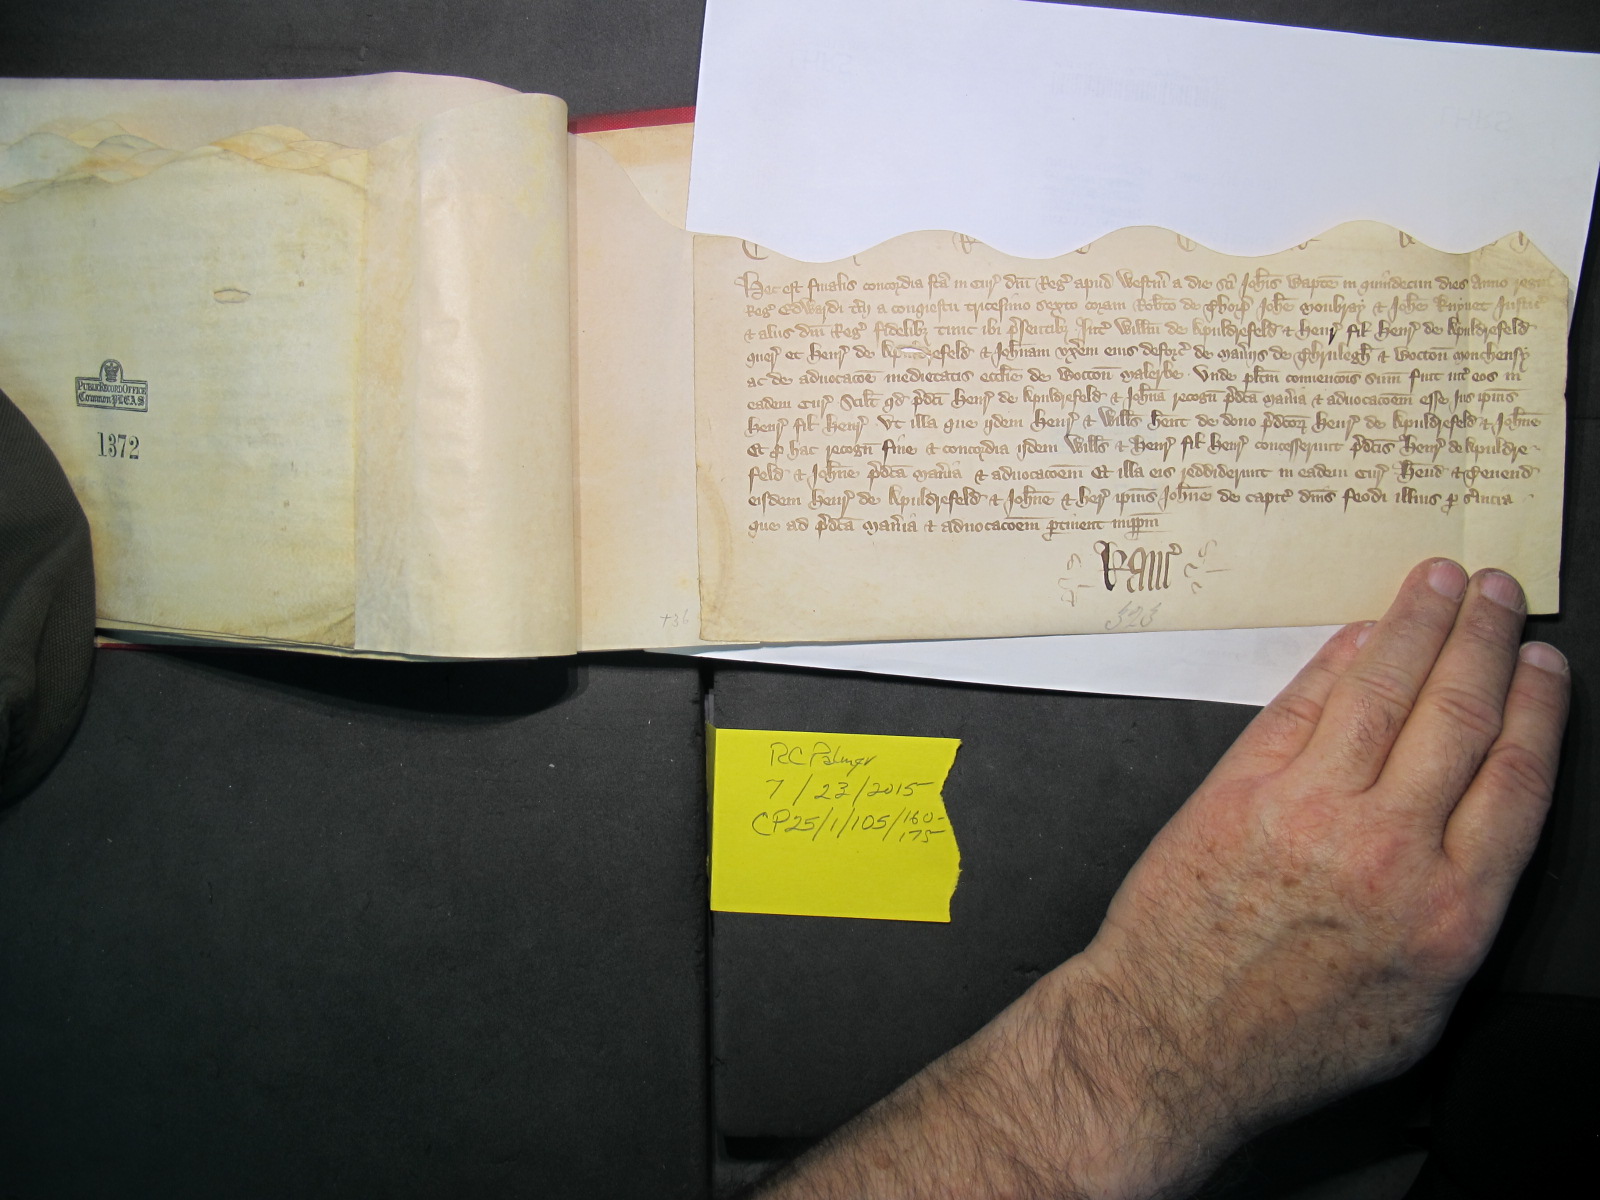 PUBLIC RECORD OFFICE
Common PLEAS
1372
Hec est finalis concordia fc̄a in Cur̄ dn̄i Reg̃ apud Westm̄ a die sc̄i Joh̄is Bapt̄e in quindecim dies Anno regni
Reg̃ Edwardi t̄cii a conquestu tricesimo sexto coram Rob̄to de Thorp̄ Joh̄e Moubray & Joh̄e Knyuet Justic̃
& aliis dn̄i Reg̃ fidelibȝ tunc ibi p̄sentibȝ Int̃ Will̄m de Apuldrefeld & Henr̃ fil̄ Henr̃ de Apuldrefeld
quer̃ et Henr̃ de Apuldrefeld & Joh̄nam vx̄em eius deforc̃ de Man̄iis de & Wotton
ac de aduocac̄oe medietatis eccl̄ie de Wotton Malerbe Vnde pl̄itm conuenc̄ois sum̄ fuit int̃ eos in
eadem Cur̃ Scil̄t qd̄ p̄d̄ci Henr̃ de Apuldrefeld & Joh̄na recogn̄ p̄d̄ca Man̄ia & aduocac̄oem esse Jus ip̄ius
Henr̃ fil̄ Henr̃ Vt illa que ijdem Henr̃ & Will̄s h̄ent de dono p̄d̄coȝ Henr̃ de Apuldrefeld & Joh̄ne
Et p̱ hac recogn̄ fine & concordia ijdem Will̄s & Henr̃ fil̄ Henr̃ concesserunt p̄d̄cis Henr̃ de Apuldre-
feld & Joh̄ne p̄d̄ca Man̄ia & aduocac̄oem Et illa eis reddiderunt in eadem Cur̃ Hend̄ & Tenend̄
eisdem Henr̃ de Apuldrefeld & Joh̄ne & her̃ ip̄ius Joh̄ne de capit̃ dn̄is feodi illius p̱ s̃uicia
que ad p̄d̄ca Man̄ia & aduocac̄oem p̱tinent imp̱p̱m
Kanc̃
323
136
RC Palmer
7/23/2015
CP25/1/105/160-
175